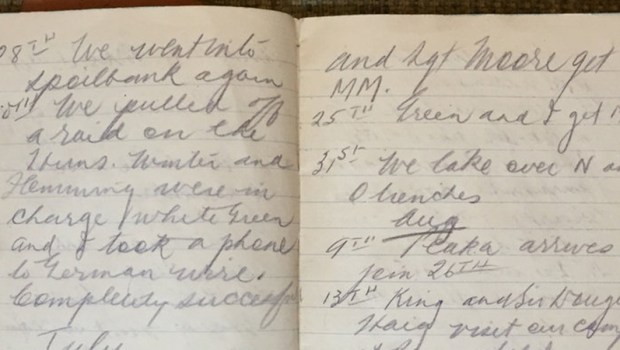 08TH We went into
spoilbank again
We pulled off
a raid on the
Huns. Winter and
Flemming were in
charge / while Green
and I took a phone
to German wire.
Completely successful
July
and Sgt Moore get
MM.
25TH Green and I get
31ST We take over N
O trenches
Aug
9TH arrives
join 26TH
13TH King and Sir Doug
Haig visit our